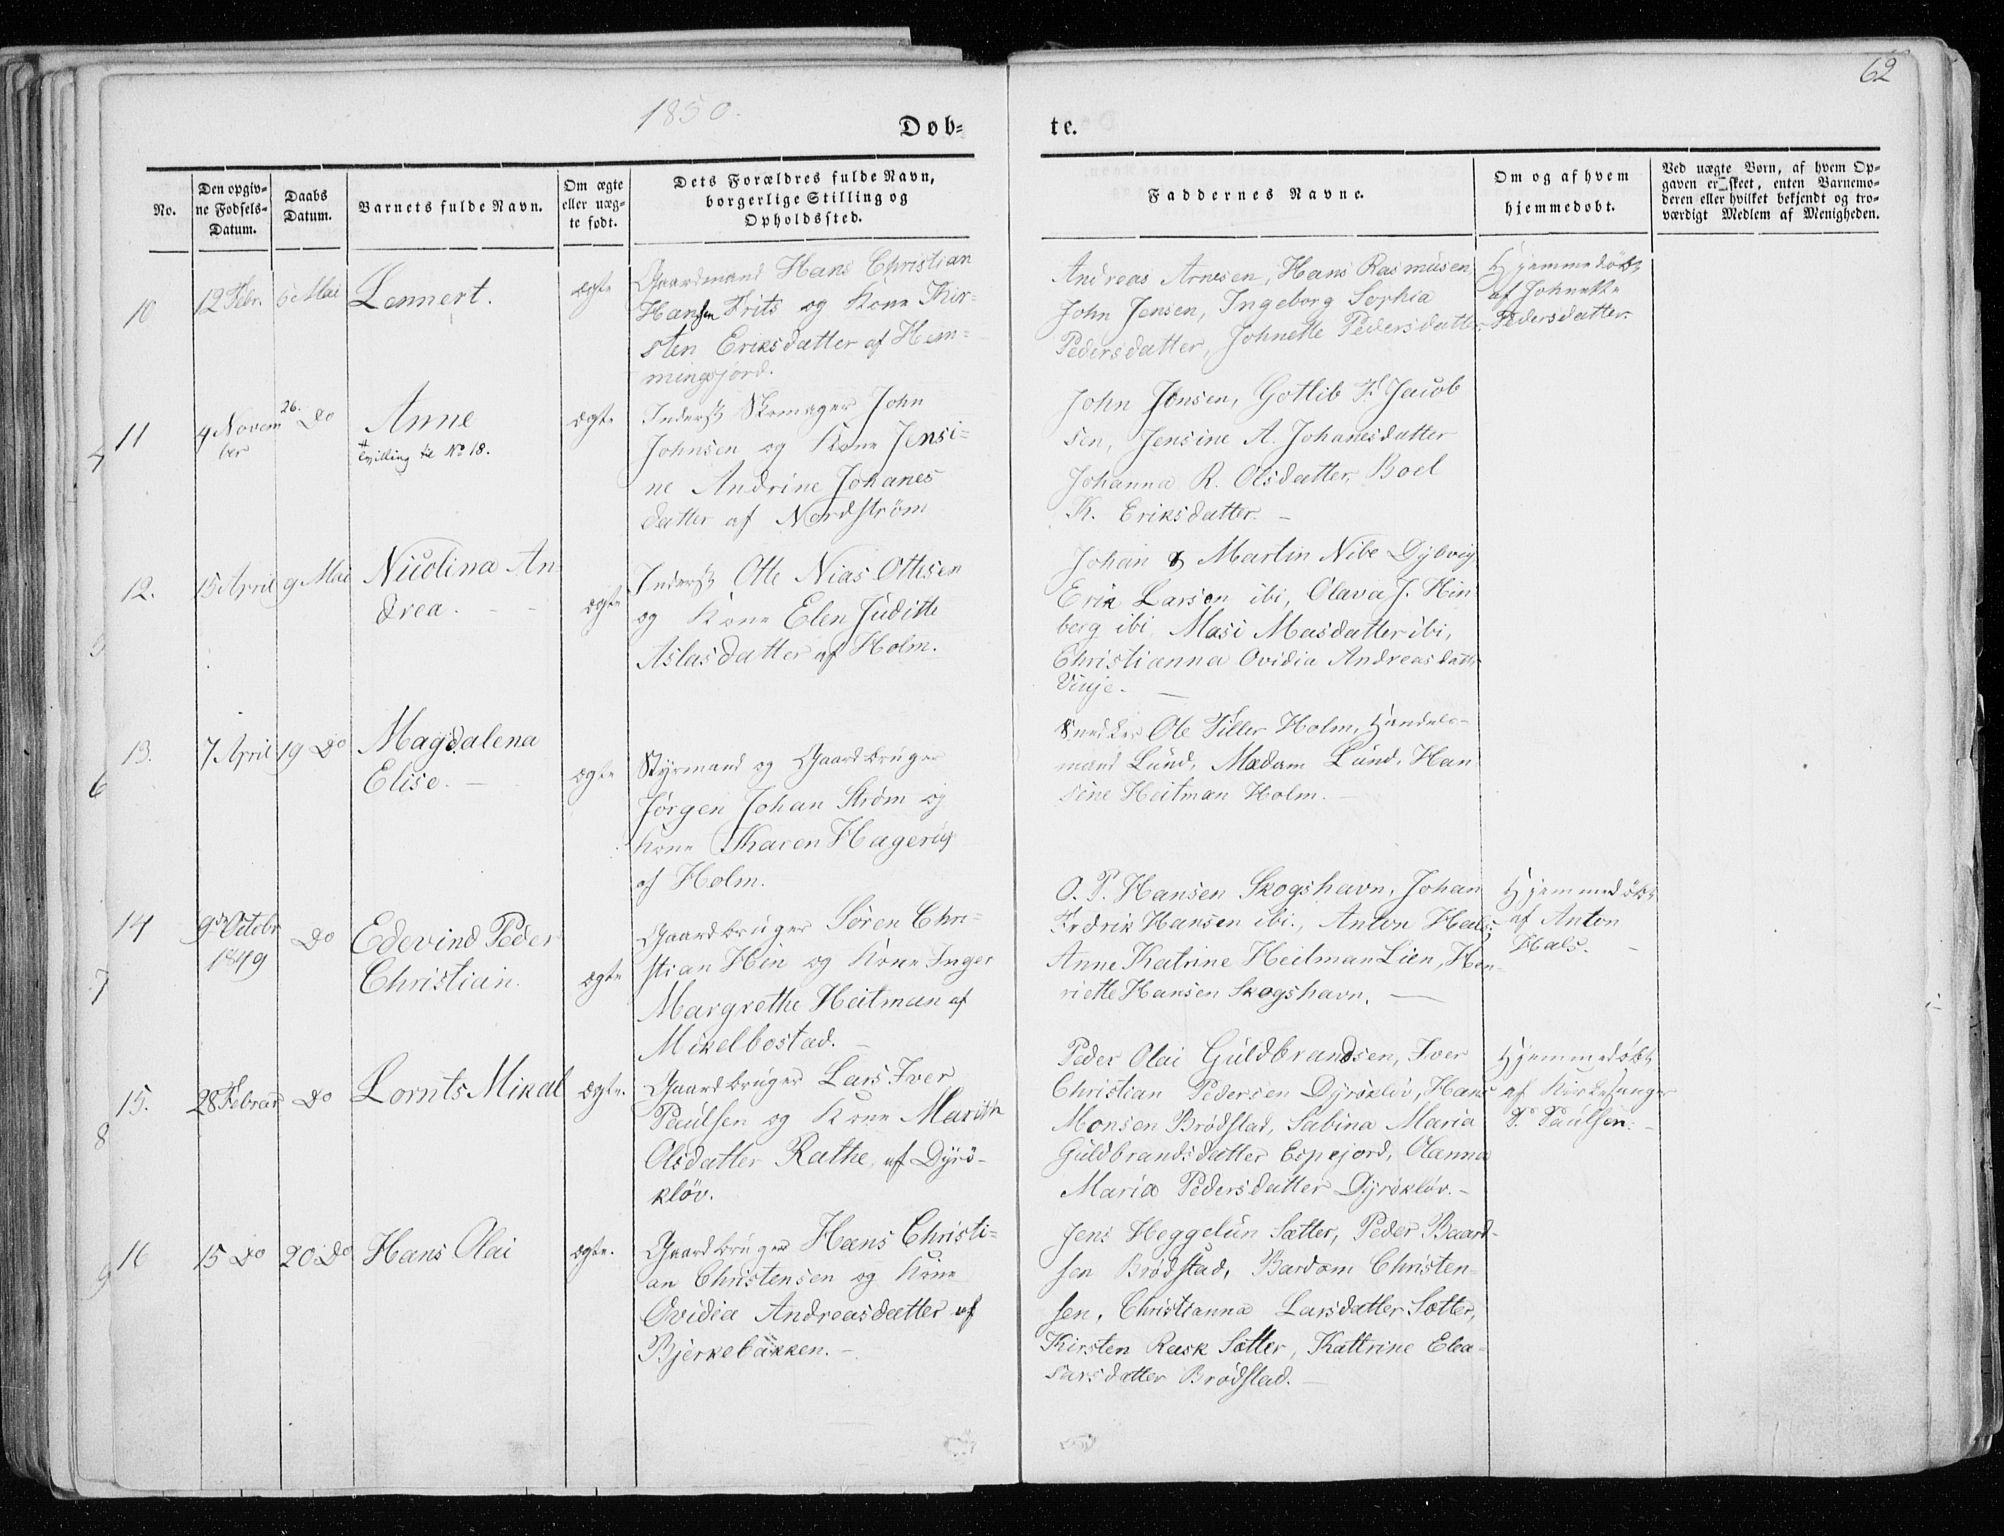 62
1850.
Døb-
te.
No.
Den opgiv-
ne Fødsels-
Datum.
Daabs
Datum.
Barnets fulde Navn.
Om ægte
eller uæg-
te født.
Dets Forældres fulde Navn,
borgerlige Stilling og
Opholdssted.
Faddernes Navne.
Om og af hvem
hjemmedøbt.
Ved uægte Børn, af hvem Op-
gaven er skeet, enten Barnemo-
deren eller hvilket bekjendt og tro-
værdigt Medlem af Menigheden.
10
12 Febr.
6 Mai
Lennert.
ægte
Gaardmand Hans Christian
Hansen Frits og Kone Kir-
sten Eriksdatter af Hem-
mingsjord.
Andreas Arnesen, Hans Rasmusen
John Jensen, Ingeborg Sophia
Pedersdatter, Johnette Pedersdatter
Hjemmedøbt
af Johnette
Pedersdatter.
11
4 Novem
ber
26. Do
Anne
+
tvilling til No 18.
ægte
Inderst Skomager John
Johnsen og Kone Jensi-
ne Andrine Johanes
datter af Nordstrøm
John Jensen, Gotlib F. Jacob
sen, Jensine A. Johanesdatter
Johanna R. Olsdatter, Boel
K. Eriksdatter. -
12.
15 April
9 Mai
Nicolina An-
drea.
ægte
Inderst Otte Nias Ottesen
og Kone Elen Juditte
Aslasdatter af Holm.
Johan & Martin Nibe Dybvig
Erik Larsen ibi, Olava J. Hin
berg ibi, Masi Masdatter ibi,
Christianna Ovidia Andreasdatt
Vinje.
13.
7 April
19 Do
Magdalena
Elise. -
ægte
Styrmand og Gaardbruger
Jørgen Johan Strøm og
Kone Karen Hagerup
af Holm.
Snedker Ole Tiller Holm, Handels-
mand Lund, Madam Lund, Han
sine Heitman Holm.
14
9de Octobr
1849
Do
Edevind Peder
Christian.
ægte
Gaardbruger Søren Chri-
stian Hin og Kone Inger
Margrethe Heitman af
Mikelbostad. -
O. P. Hansen Skogshavn, Johan
Fredrik Hansen ibi., Anton Hals,
Anne Katrine Heitman Lien, Hen-
riette Hansen Skogshavn. -
Hjemmedøbt
af Anton
Hals.
15.
28 Februar
Do
Lornts Mikal
ægte.
Gaardbruger Lars Iver
Paulsen og Kone Marith
Olsdatter Rathe, af Dyrø-
kløv.
Peder Olai Guldbrandsen, Iver
Christian Pedersen Dyrøkløv, Hans
Monsen Brødstad, Sabina Maria
Guldbrandsdatter Espejord, Olanna
Maria Pedersdatter Dyrøkløv. -
Hjemmedøbt
af Kirkesanger
P. Paulsen. -
16
15 Do
20 Do
Hans Olai
ægte.
Gaardbruger Hans Christi-
an Christensen og Kone
Ovidia Andreasdatter af
Bjerkebakken. -
Jens Heggelun Sætter, Peder Baard-
sen Brødstad, Bardom Christen-
sen, Christianna Larsdatter Sætter,
Kirsten Rask Sætter, Kattrine Elea-
sarsdatter Brødstad. -
4
5
6
7
8
9